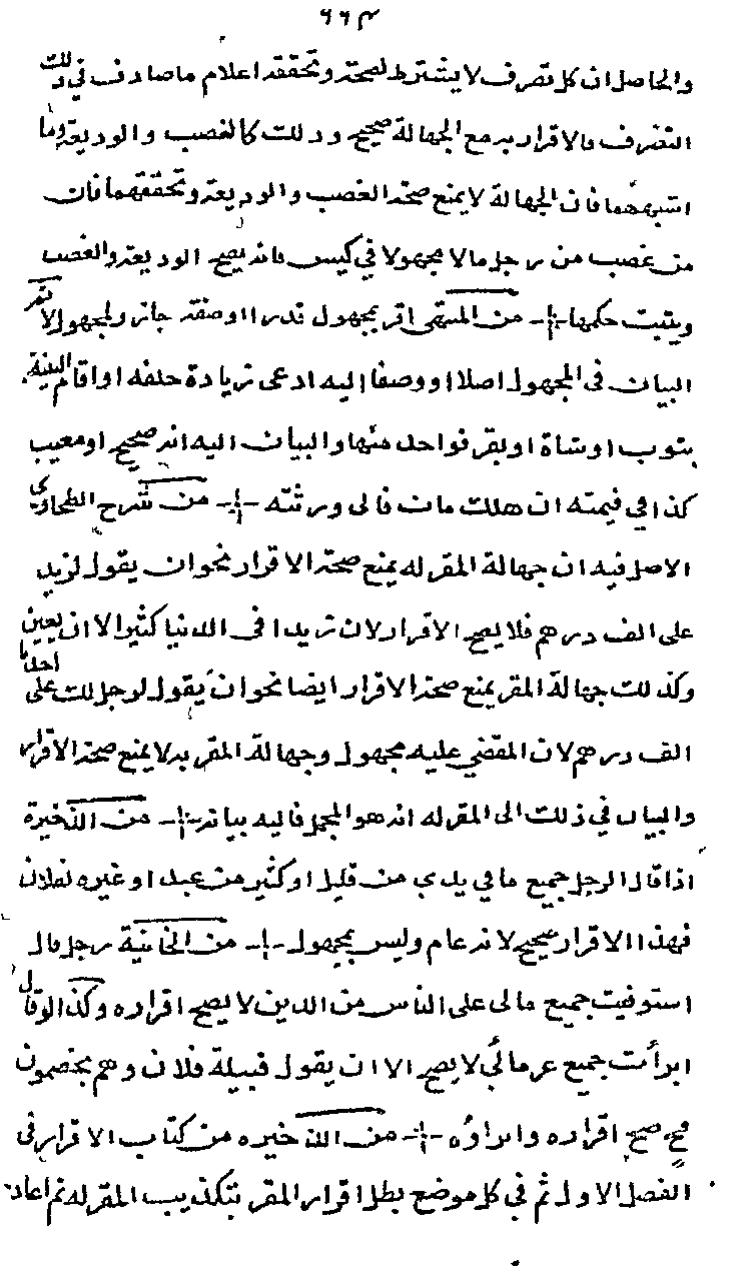 ٦٦٣
والحاصل ان كل تصرف لا يشترط لصحته وتحققه اعلام ما صادف في ذلك
التصرف فالاقرار به مع الجهالة صحيح وذلك كالغصب والوديعة وما
اشبههما فان الجهالة لا يمنع صحة الغصب والوديعة وتحققهما فان
من غصب من رجل مالا مجهولا في كيس فانه يصح الوديعة والغصب
ويثبت حكمها من المنتقى اقر بمجهول قدرا او صفة جاز ولمجهول لا
البيان في المجهول اصلا او وصفا اليه ادعى زيادة حلفه او اقام البينة
بثوب او شاة او بقر فواحد منها والبيان اليه انه صحيح او معيب
كذا في قيمته ان هلك مات فالى ورثته من شرح الطحاوي
الاصل فيه ان جهالة المقر له يمنع صحة الاقرار نحو ان يقول لزيد
على الف درهم فلا يصح الاقرار لان زيدا في الدنيا كثير الا ان يعين
وكذلك جهالة المقر يمنع صحة الاقرار ايضا نحو ان يقول لرجل لك على احدنا
الف درهم لان المقضي عليه مجهول وجهالة المقر به لا يمنع صحة الاقرار
والبيان في ذلك الى المقر له انه هو المجمل فاليه بيانه من الذخيرة
اذا قال الرجل جميع ما في يدي من قليل او كثير من عبد او غيره لفلان
فهذا الاقرار صحيح لانه عام وليس بمجهول من الخانية رجل قال
استوفيت جميع مالى على الناس من الدين لا يصح اقراره وكذا لو قال
ابرأت جميع غرمائي لا يصح الا ان يقول قبيلة فلان وهم يخصمون
فح صح اقراره وابراؤه من الذخيره من كتاب الاقرار فى
الفصل الاول ثم في كل موضع بطل اقرار المقر بتكذيب المقر له ثم اعاد